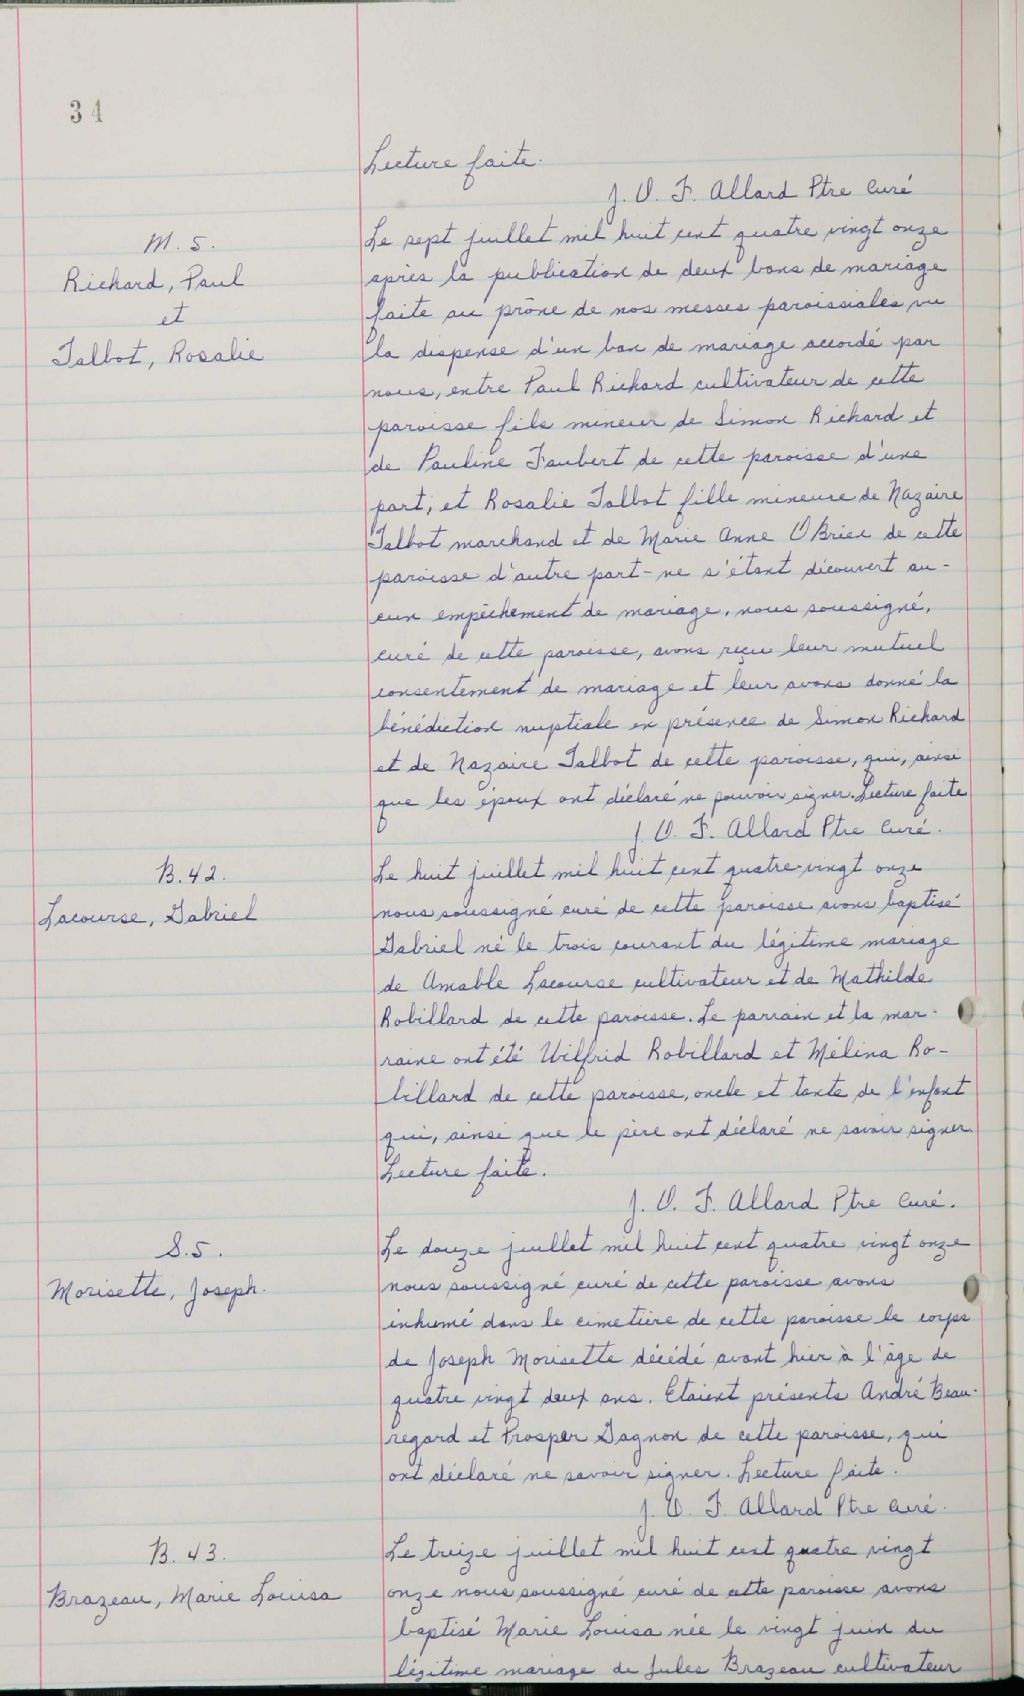 34
Lecture faite.
J. O. F. Allard Ptre Curé
M. 5.
Richard, Paul
et
Talbot, Rosalie
Le sept juillet mil huit cent quatre vingt onze
après la publication de deux bans de mariage
faite au prône de nos messes paroissiales, vu
la dispense d'un ban de mariage accordé par
nous, entre Paul Richard cultivateur de cette
paroisse fils mineur de Simon Richard et
de Pauline Faubert de cette paroisse d'une
part, et Rosalie Talbot fille mineure de Nazaire
Talbot marchand et de Marie Anne O'Brien de cette
paroisse d'autre part - ne s'étant découvert au-
cun empêchement de mariage, nous soussigné,
curé de cette paroisse, avons reçu leur mutuel
consentement de mariage et leur avons donné la
bénédiction nuptiale en présence de Simon Richard
et de Nazaire Talbot de cette paroisse, qui, ainsi
que les époux ont déclaré ne pouvoir signer. Lecture faite
J. O. F. Allard Ptre Curé.
B. 42.
Lacourse, Gabriel
Le huit juillet mil huit cent quatre-vingt onze
nous soussigné curé de cette paroisse avons baptisé
Gabriel né le trois courant du légitime mariage
de Amable Lacourse cultivateur et de Mathilde
Robillard de cette paroisse. Le parrain et la mar-
raine ont été Wilfrid Robillard et Mélina Ro-
billard de cette paroisse, oncle et tante de l'enfant
qui, ainsi que le père ont déclaré ne savoir signer.
Lecture faite.
J. O. F. Allard Ptre Curé.
S. 5.
Morisette, Joseph.
Le douze juillet mil huit cent quatre vingt onze
nous soussigné curé de cette paroisse avons
inhumé dans le cimetière de cette paroisse le corps
de Joseph Morisette décédé avant hier à l'âge de
quatre vingt deux ans. Etaient présents André Beau-
regard et Prosper Gagnon de cette paroisse, qui
ont déclaré ne savoir signer. Lecture faite.
J. O. F. Allard Ptre Curé.
B. 43.
Brazeau, Marie Louisa
Le treize juillet mil huit cent quatre vingt
onze nous soussigné curé de cette paroisse avons
baptisé Marie Louisa née le vingt juin du
légitime mariage de Jules Brazeau cultivateur